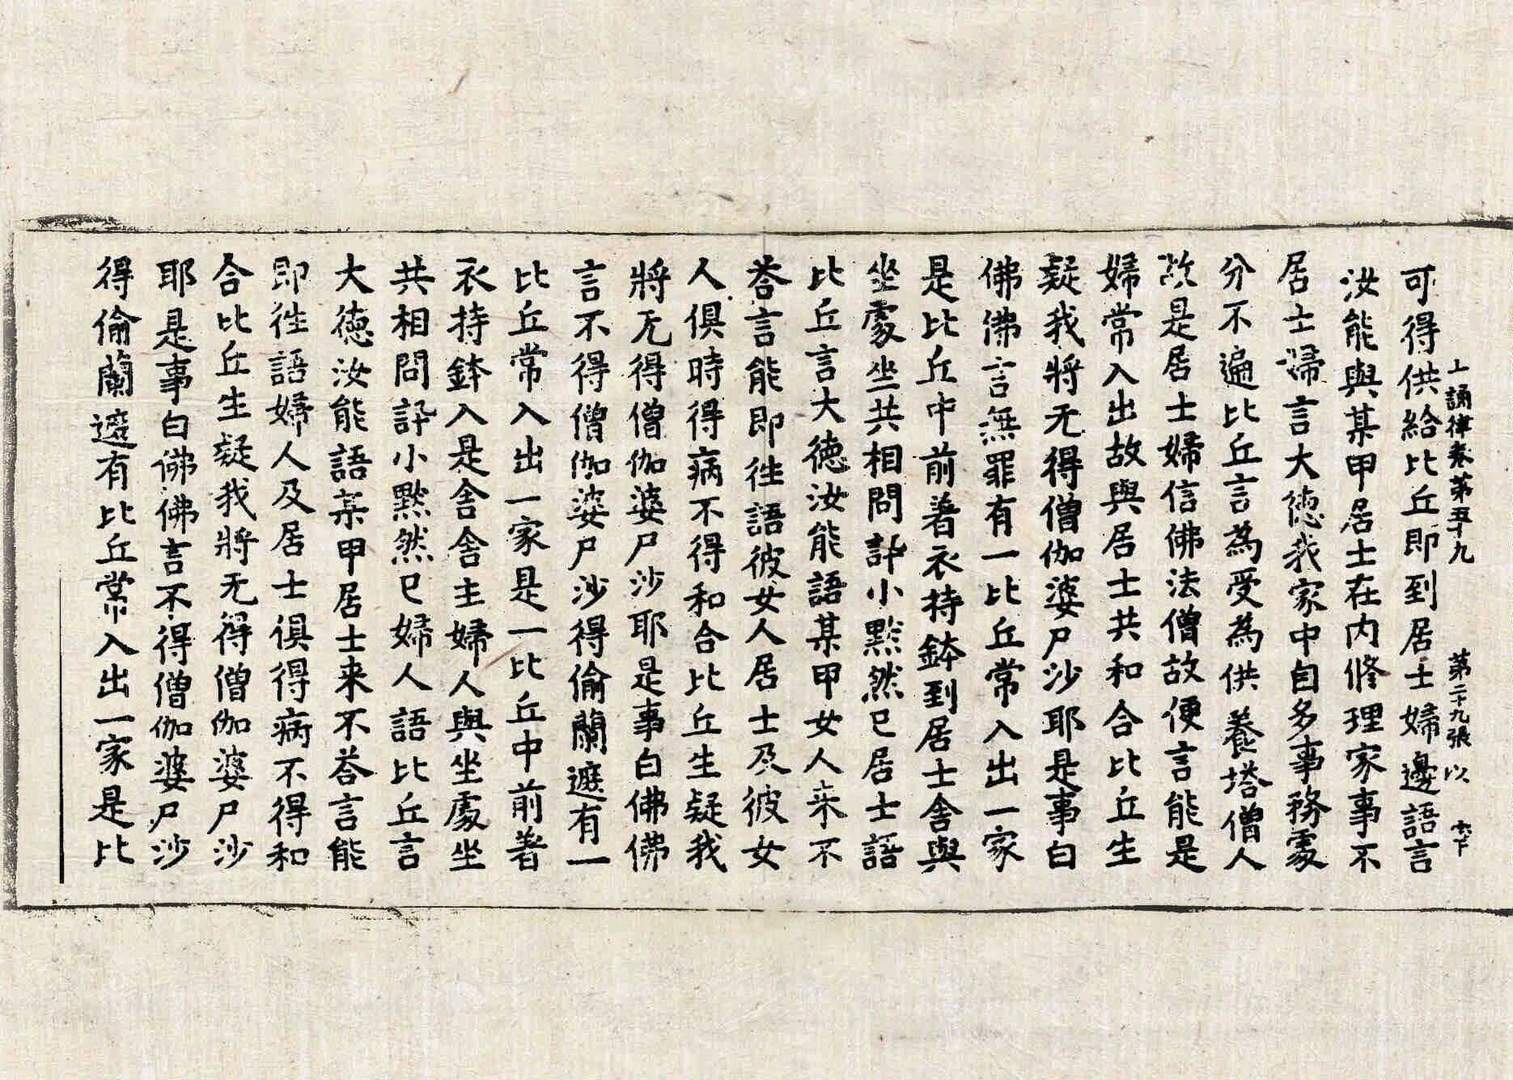 十誦律卷第五十九 第二十九張 以
可得供給比丘即到居士婦邊語言
汝能與某甲居士在内修理家事不
居士婦言大德我家中自多事務處
分不遍比丘言為受為供養塔僧人
故是居士婦信佛法僧故便言能是
婦常入出故與居士共和合比丘生
疑我將无得僧伽婆尸沙耶是事白
佛佛言無罪有一比丘常入出一家
是比丘中前著衣持鉢到居士舍與
坐處坐共相問訊小默然已居士語
比丘言大德汝能語某甲女人来不
荅言能即往語彼女人居士及彼女
人俱時得病不得和合比丘生疑我
將无得僧伽婆尸沙耶是事白佛佛
言不得僧伽婆尸沙得偷蘭遮有一
比丘常入出一家是一比丘中前著
衣持鉢入是舍舍主婦人與坐處坐
共相問訊小默然已婦人語比丘言
大德汝能語某甲居士来不荅言能
即往語婦人及居士俱得病不得和
合比丘生疑我將无得僧伽婆尸沙
耶是事白佛佛言不得僧伽婆尸沙
得偷蘭遮有比丘常入出一家是比